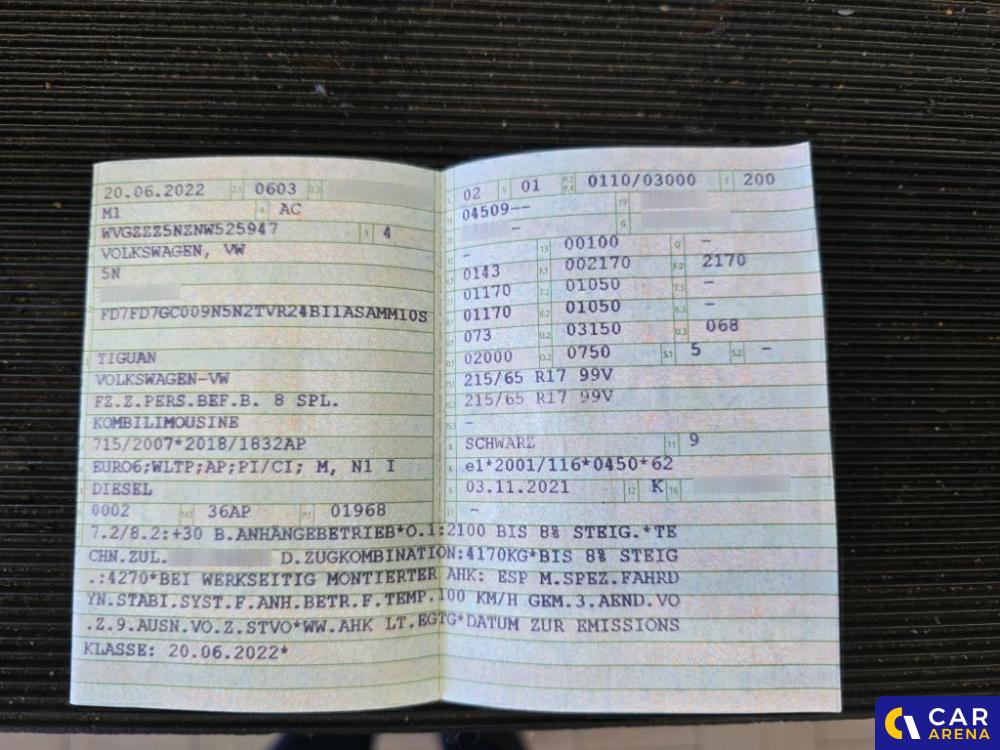 20.06.2022 2.1 0603 2.2
M1 AC
WVGZZZ5NZNW525947 3 4
VOLKSWAGEN, VW
5N
FD7FD7GC009N5N2TVR24BI1ASAMM10S
TIGUAN
VOLKSWAGEN-VW
FZ.Z.PERS.BEF.B. 8 SPL.
KOMBILIMOUSINE
715/2007*2018/1832AP
EURO6;WLTP;AP;PI/CI; M, N1 I
DIESEL
0002 36AP 01968
02 9 01 P.2 P.4 0110/03000 T 200
04509-- 19
- G
- 13 00100 Q -
0143 F.1 002170 F.2 2170
01170 7.2 01050 7.3 -
01170 8.2 01050 8.3 -
073 U.2 03150 U.3 068
02000 O.2 0750 S.1 5 S.2 -
215/65 R17 99V
215/65 R17 99V
-
R SCHWARZ 11 9
K e1*2001/116*0450*62
6 03.11.2021 17 K 16
21 -
7.2/8.2:+30 B.ANHÄNGEBETRIEB*O.1:2100 BIS 8% STEIG.*TE
CHN.ZUL. D.ZUGKOMBINATION:4170KG*BIS 8% STEIG
.:4270*BEI WERKSEITIG MONTIERTER AHK: ESP M.SPEZ.FAHRD
YN.STABI.SYST.F.ANH.BETR.F.TEMP.100 KM/H GEM.3.AEND.VO
.Z.9.AUSN.VO.Z.STVO*WW.AHK LT.EGTG*DATUM ZUR EMISSIONS
KLASSE: 20.06.2022*
CAR
ARENA